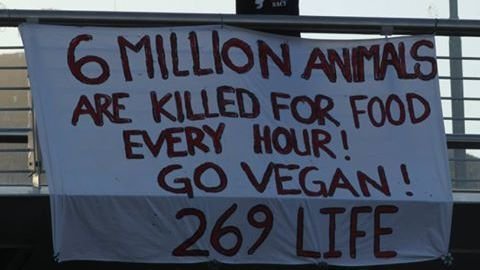 6 MILLION ANIMALS
ARE KILLED FOR FOOD
EVERY HOUR!
GO VEGAN!
269 LIFE